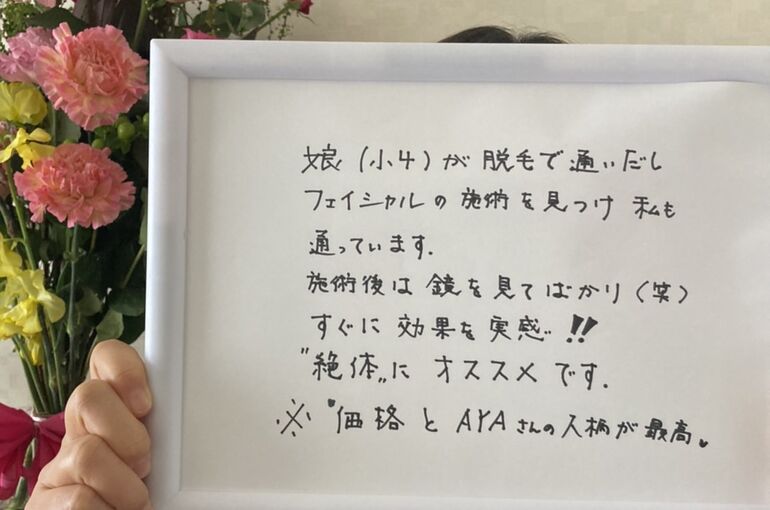 娘(小4)が脱毛で通いだし
フェイシャルの施術を見つけ 私も
通っています.
施術後は鏡を見てばかり(笑)
すぐに効果を実感‼
"絶体„に オススメです.
※ 価格とAYAさんの人柄が最高。